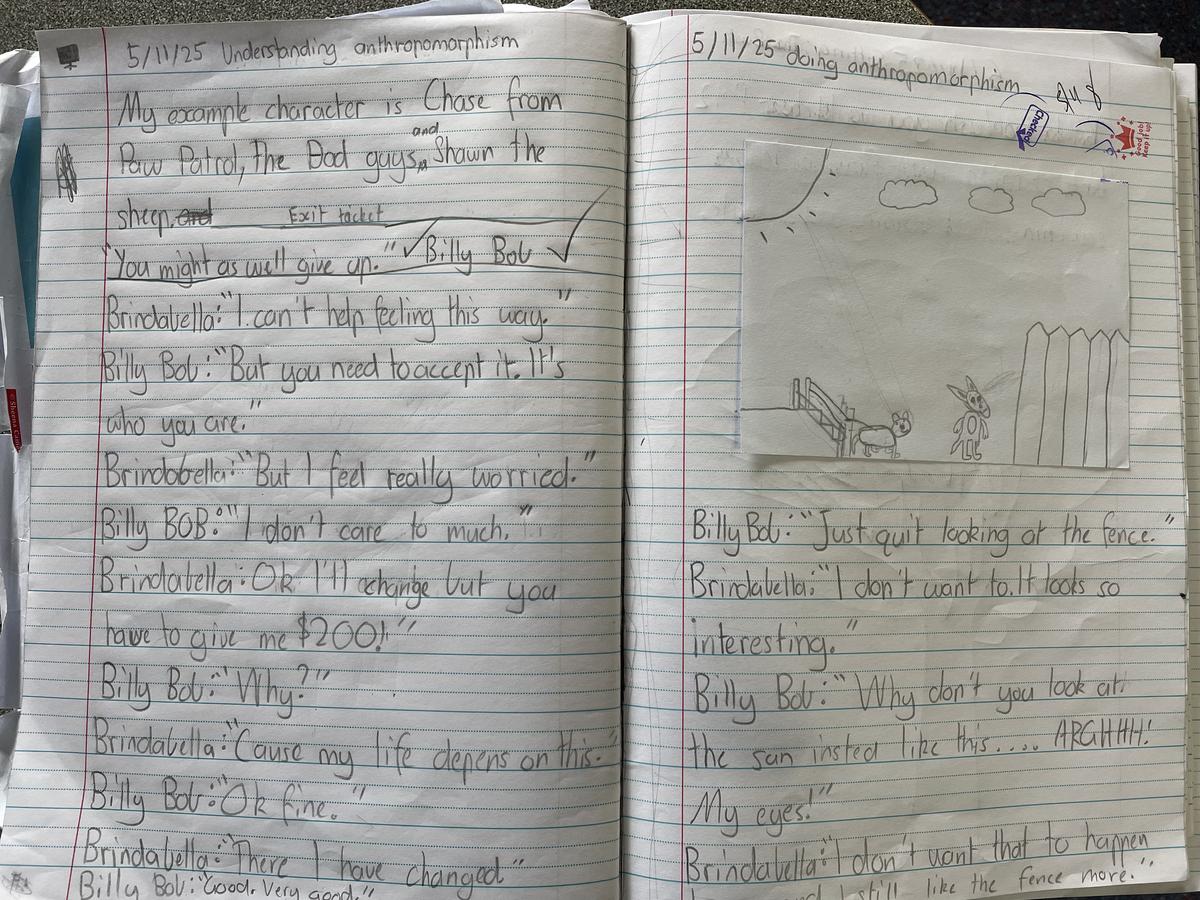 5/11/25 Understanding anthropomorphism
My example character is Chase from
and
Paw Patrol, The Bad guys, Shawn the
sheep. and Exit tacket
"You might as well give up." Billy Bob
Brindabella: "I can't help feeling this way."
Billy Bob: "But you need to accept it. It's
who you are."
Brindabella: "But I feel really worried."
Billy BOB: "I don't care to much."
Brindabella: Ok I'll change but you
have to give me $200!"
Billy Bob: "Why?"
Brindabella: "Cause my life depens on this."
Billy Bob: "Ok fine."
Brindabella: "There I have changed"
Billy Bob: "Good. Very good."
5/11/25 doing anthropomorphism
Checked
Good job!
Keep it up!
Billy Bob: "Just quit looking at the fence."
Brindabella: "I don't want to. It looks so
interesting."
Billy Bob: "Why don't you look at
the sun insted like this.... ARGHHH!
My eyes!"
Brindabella: "I don't want that to happen
and I still like the fence more."